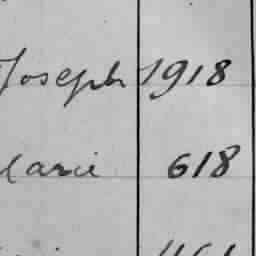 Joseph 1918
Marie 618